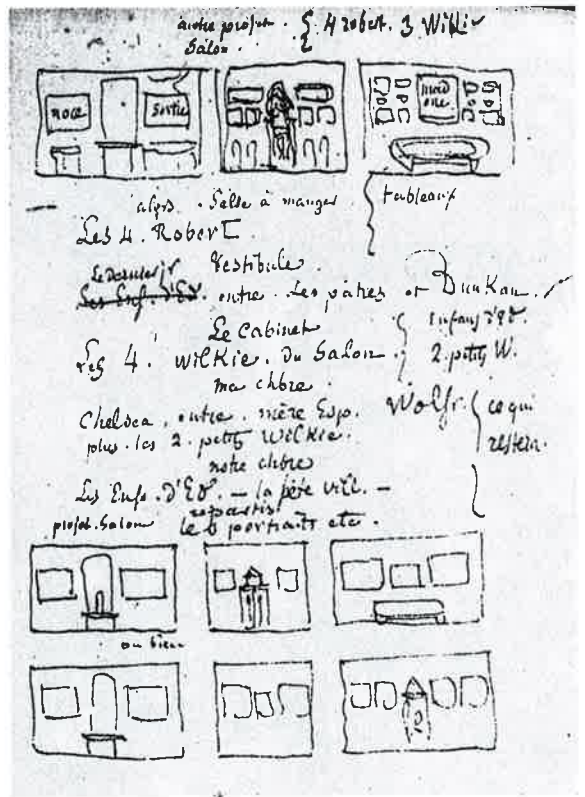 autre projet . { 4 robert. 3 Wilkie
Salon.
noce
Sortie
mad
one.
alors . Salle à manger
tableaux
Les 4. Robert
Vestibule.
Le Dernier jr
Les Enf. D'Ed. entre . Les pâtres et Dunkan.
Le Cabinet
Enfans d'Ed.
Les 4. Wilkie. Du Salon.
2 petits W.
ma chbre
Chelsea . entre . mère Esp. Wolfr. ce qui
plus . les 2. petits Wilkie. restera.
notre chbre
Les Enfs. D'Ed. – la fête vill. –
repartir
projet. Salon le 6 portraits etc.
ou bien
2